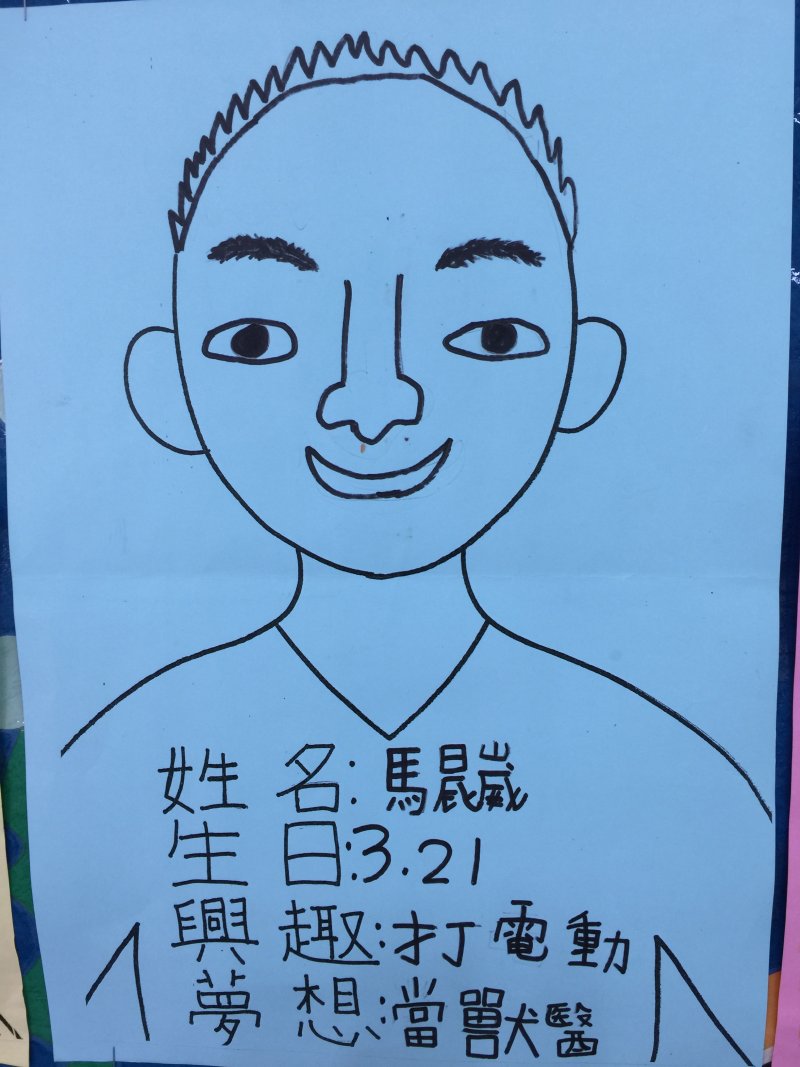 姓名:馬晨崴
生日:3.21
興趣:打電動
夢想:當獸醫